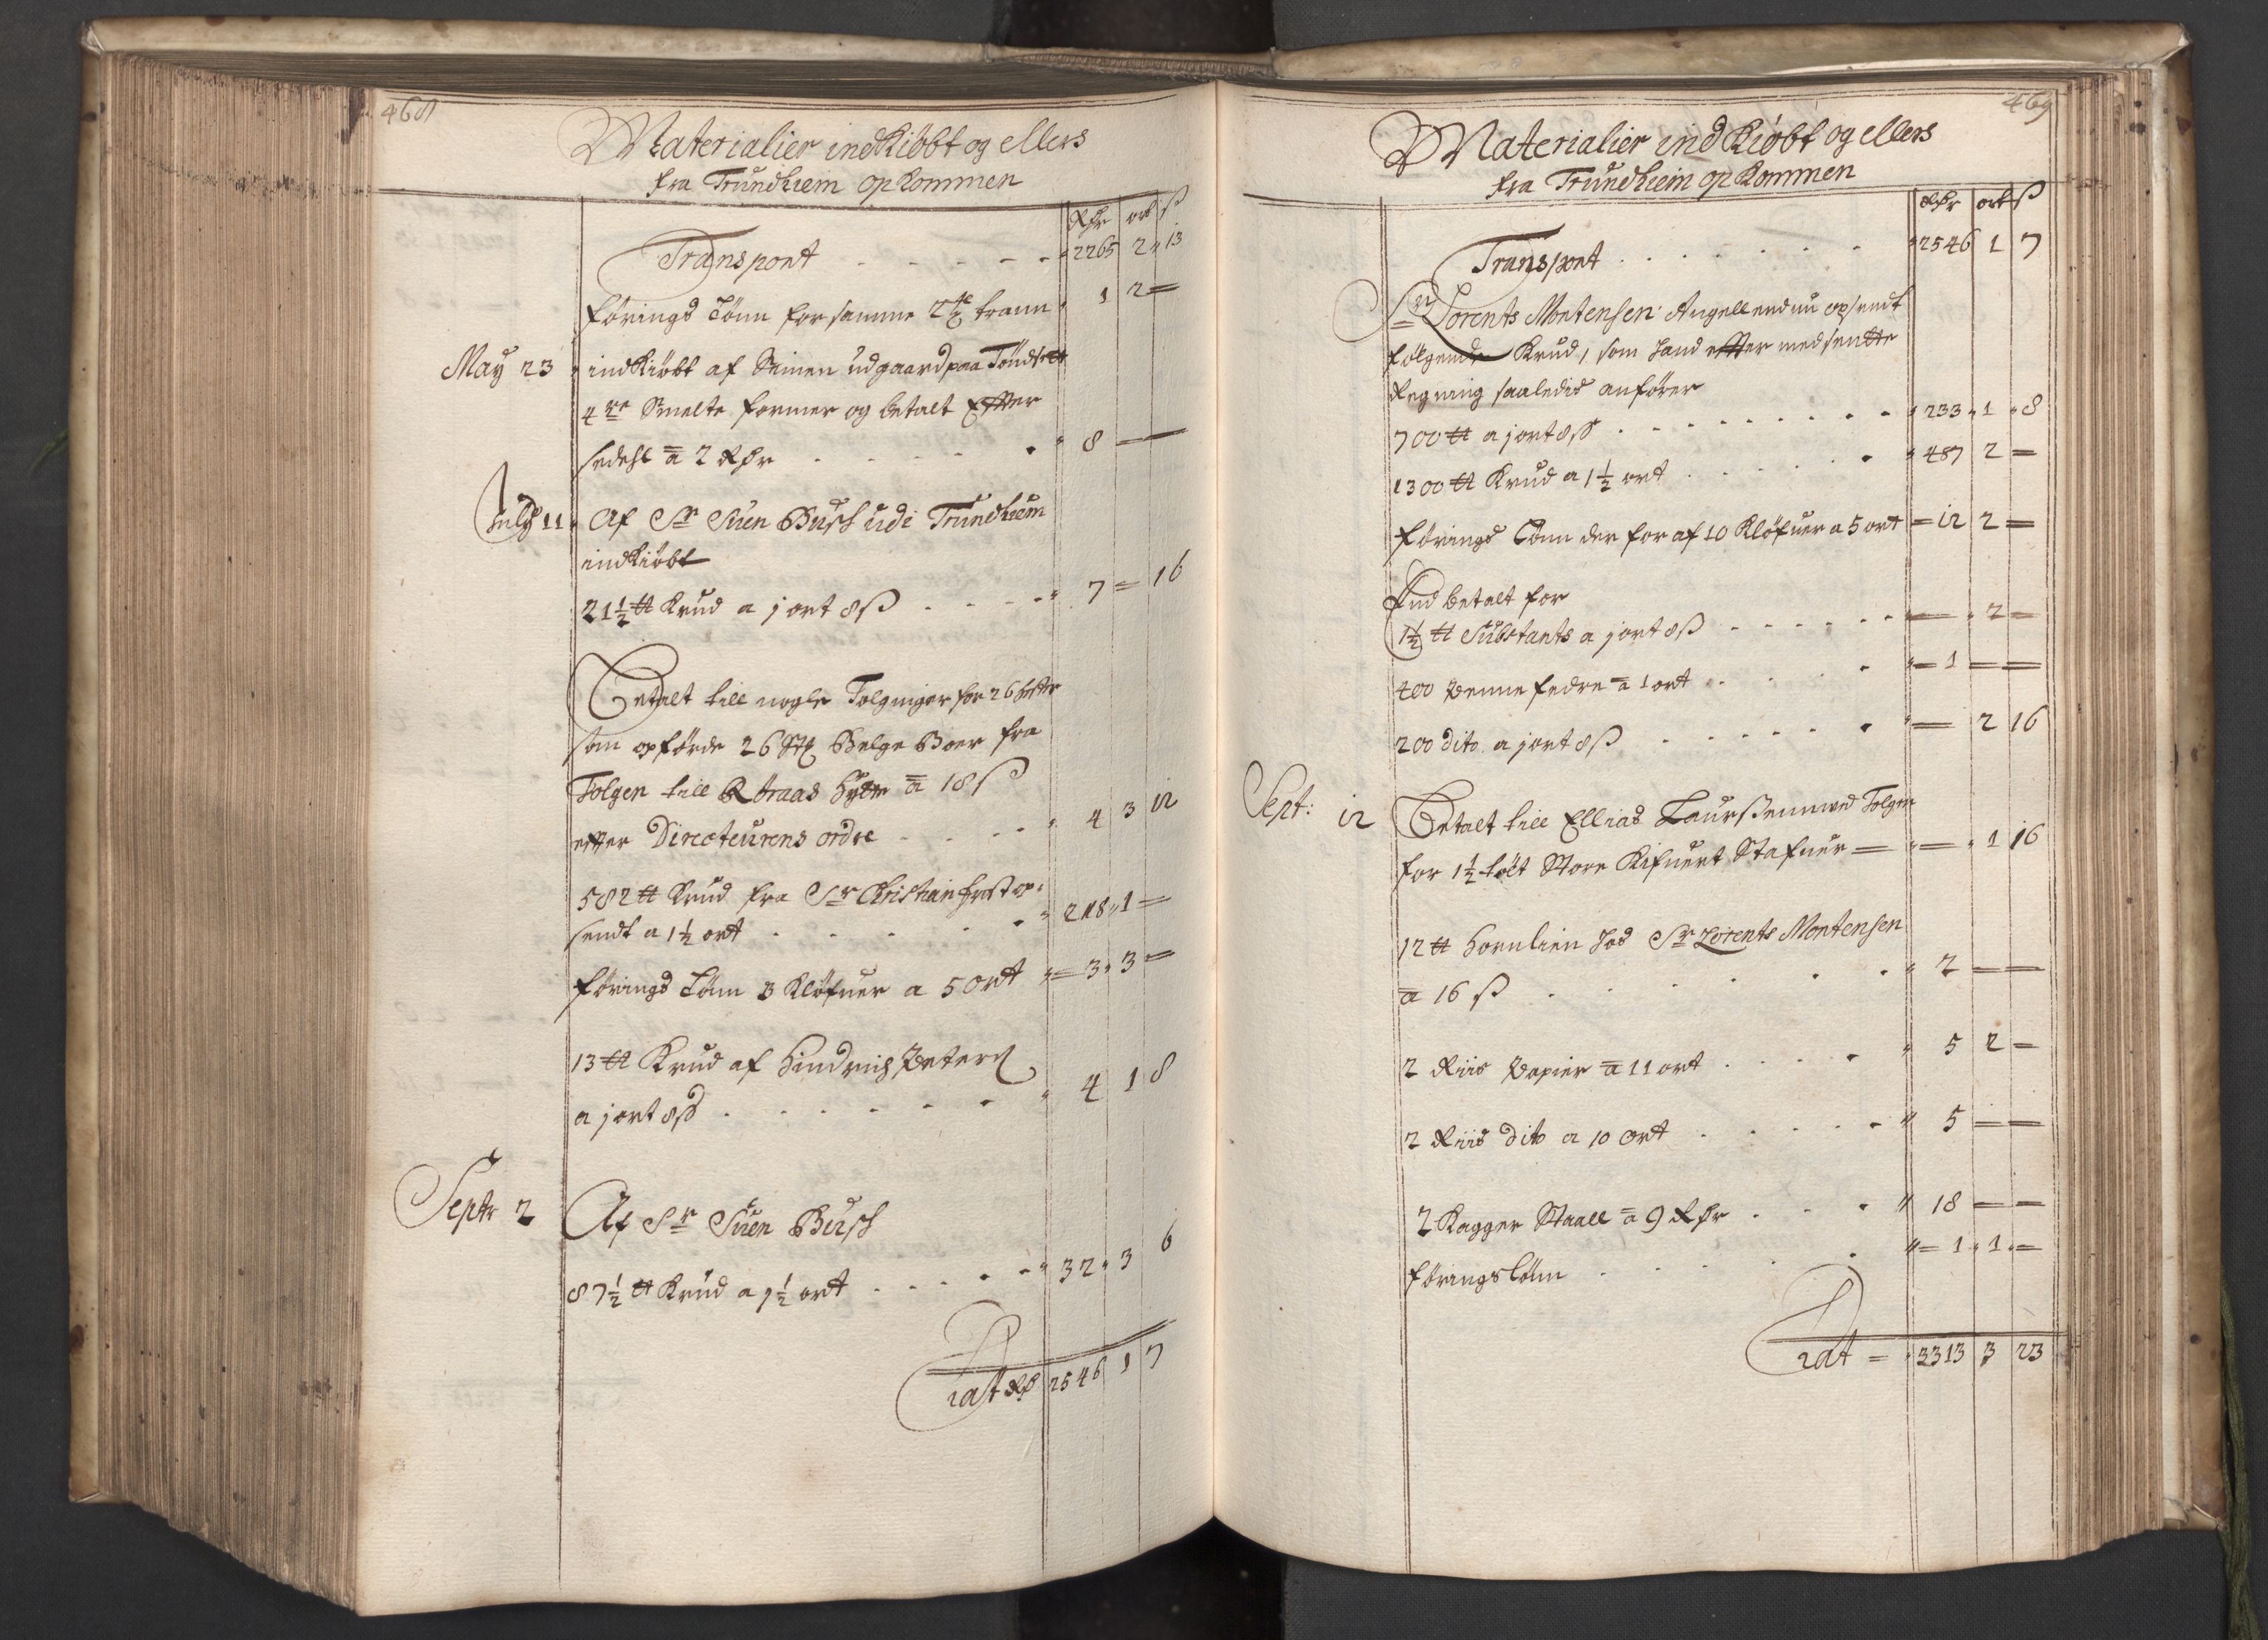 468
Materialier indkiøbt og ellers
fra Trundhiem opkommen
Rdr ort ß
Transport - - - - - 2265 2 13
førings Lønn for samme 2 tde trann 1 2 =
May 23 indkiøbt af Simen udgaard paa Töndset
4re Smelte former og betalt Effter
sedehl a 2 Rdr . . . . . 8 —
July 11 Af Sr Suen Busch udi Trundhiem
indkiøbt
21½ ℔ Krud a j ort 8 ß - - - - 7 = 16
Betalt till nogle Tolgninger for 26 hester
som opførde 26 Stk Belge Boer fra
Tolgen till Röraas Hytte a 18 ß
effter Directeurens ordre - - - - 4 3 12
582 ℔ Krud fra Sr Christian hast op-
sendt a 1½ ort . . . . . 218 1 =
førings Lönn 3 Kløfuer a 5 ort = 3 3 =
13 ℔ Krud af Hindrich Peters
a j ort 8 ß . . . . . . 4 1 8
Septr 2 Af Sr Suen Busch
87½ ℔ Krud a 1½ ort . . . . . 32 3 6
Lat Rdr 2546 1 7
469
Materialier indkiøbt og ellers
fra Trundhiem opkommen
Rdr ort ß
Transport . . . . . . . 2546 1 7
Sr Lorents Mortensen Angell endnu opsendt
følgende Krud, som hand effter medsendte
Regning saaledis anfører
700 ℔ a j ort 8 ß . . . . . . . . 233 1 8
1300 ℔ Krud a 1½ ort . . . . . . 487 2 =
førings Lønn der for af 10 Kløfuer a 5 ort = 12 2 =
End betalt for
1½ ℔ Substants a j ort 8 ß - - - - - - — 2 =
400 Penne fedre a 1 ort . . . . 1 — —
200 dito a j ort 8 ß . . . . . . — 2 16
Sept: 12 Betalt till Ellias Laurssen ved Tolgen
for 1½ tolt Store Kifuert Stafuer — — 1 16
12 ℔ hornlim hos Sr Lorents Mortensen
a 16 ß . . . . . . 2 — —
2 Riis Papier a 11 ort . . . . 5 2 =
2 Riis dito a 10 ort . . . . . 5 — —
2 Kagger Staall a 9 Rdr . . . 18 — —
føringslönn . . . . . = 1 1 =
Lat = 3313 3 23